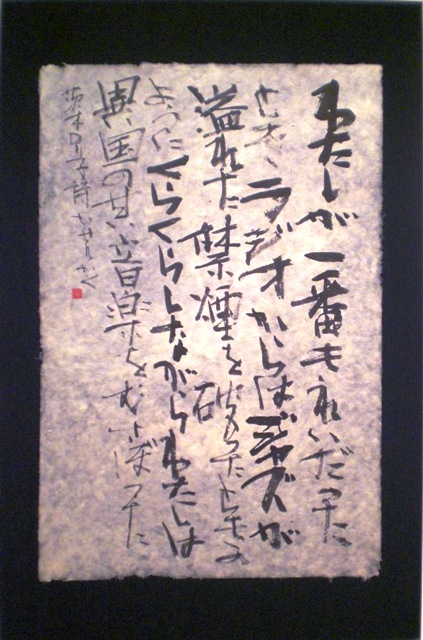 わたしが一番きれいだった
とき、ラジオからはジャズが
溢れた禁煙を破ったときの
ようにくらくらしながらわたしは
異国の甘い音楽をむさぼった
茨木のり子詩